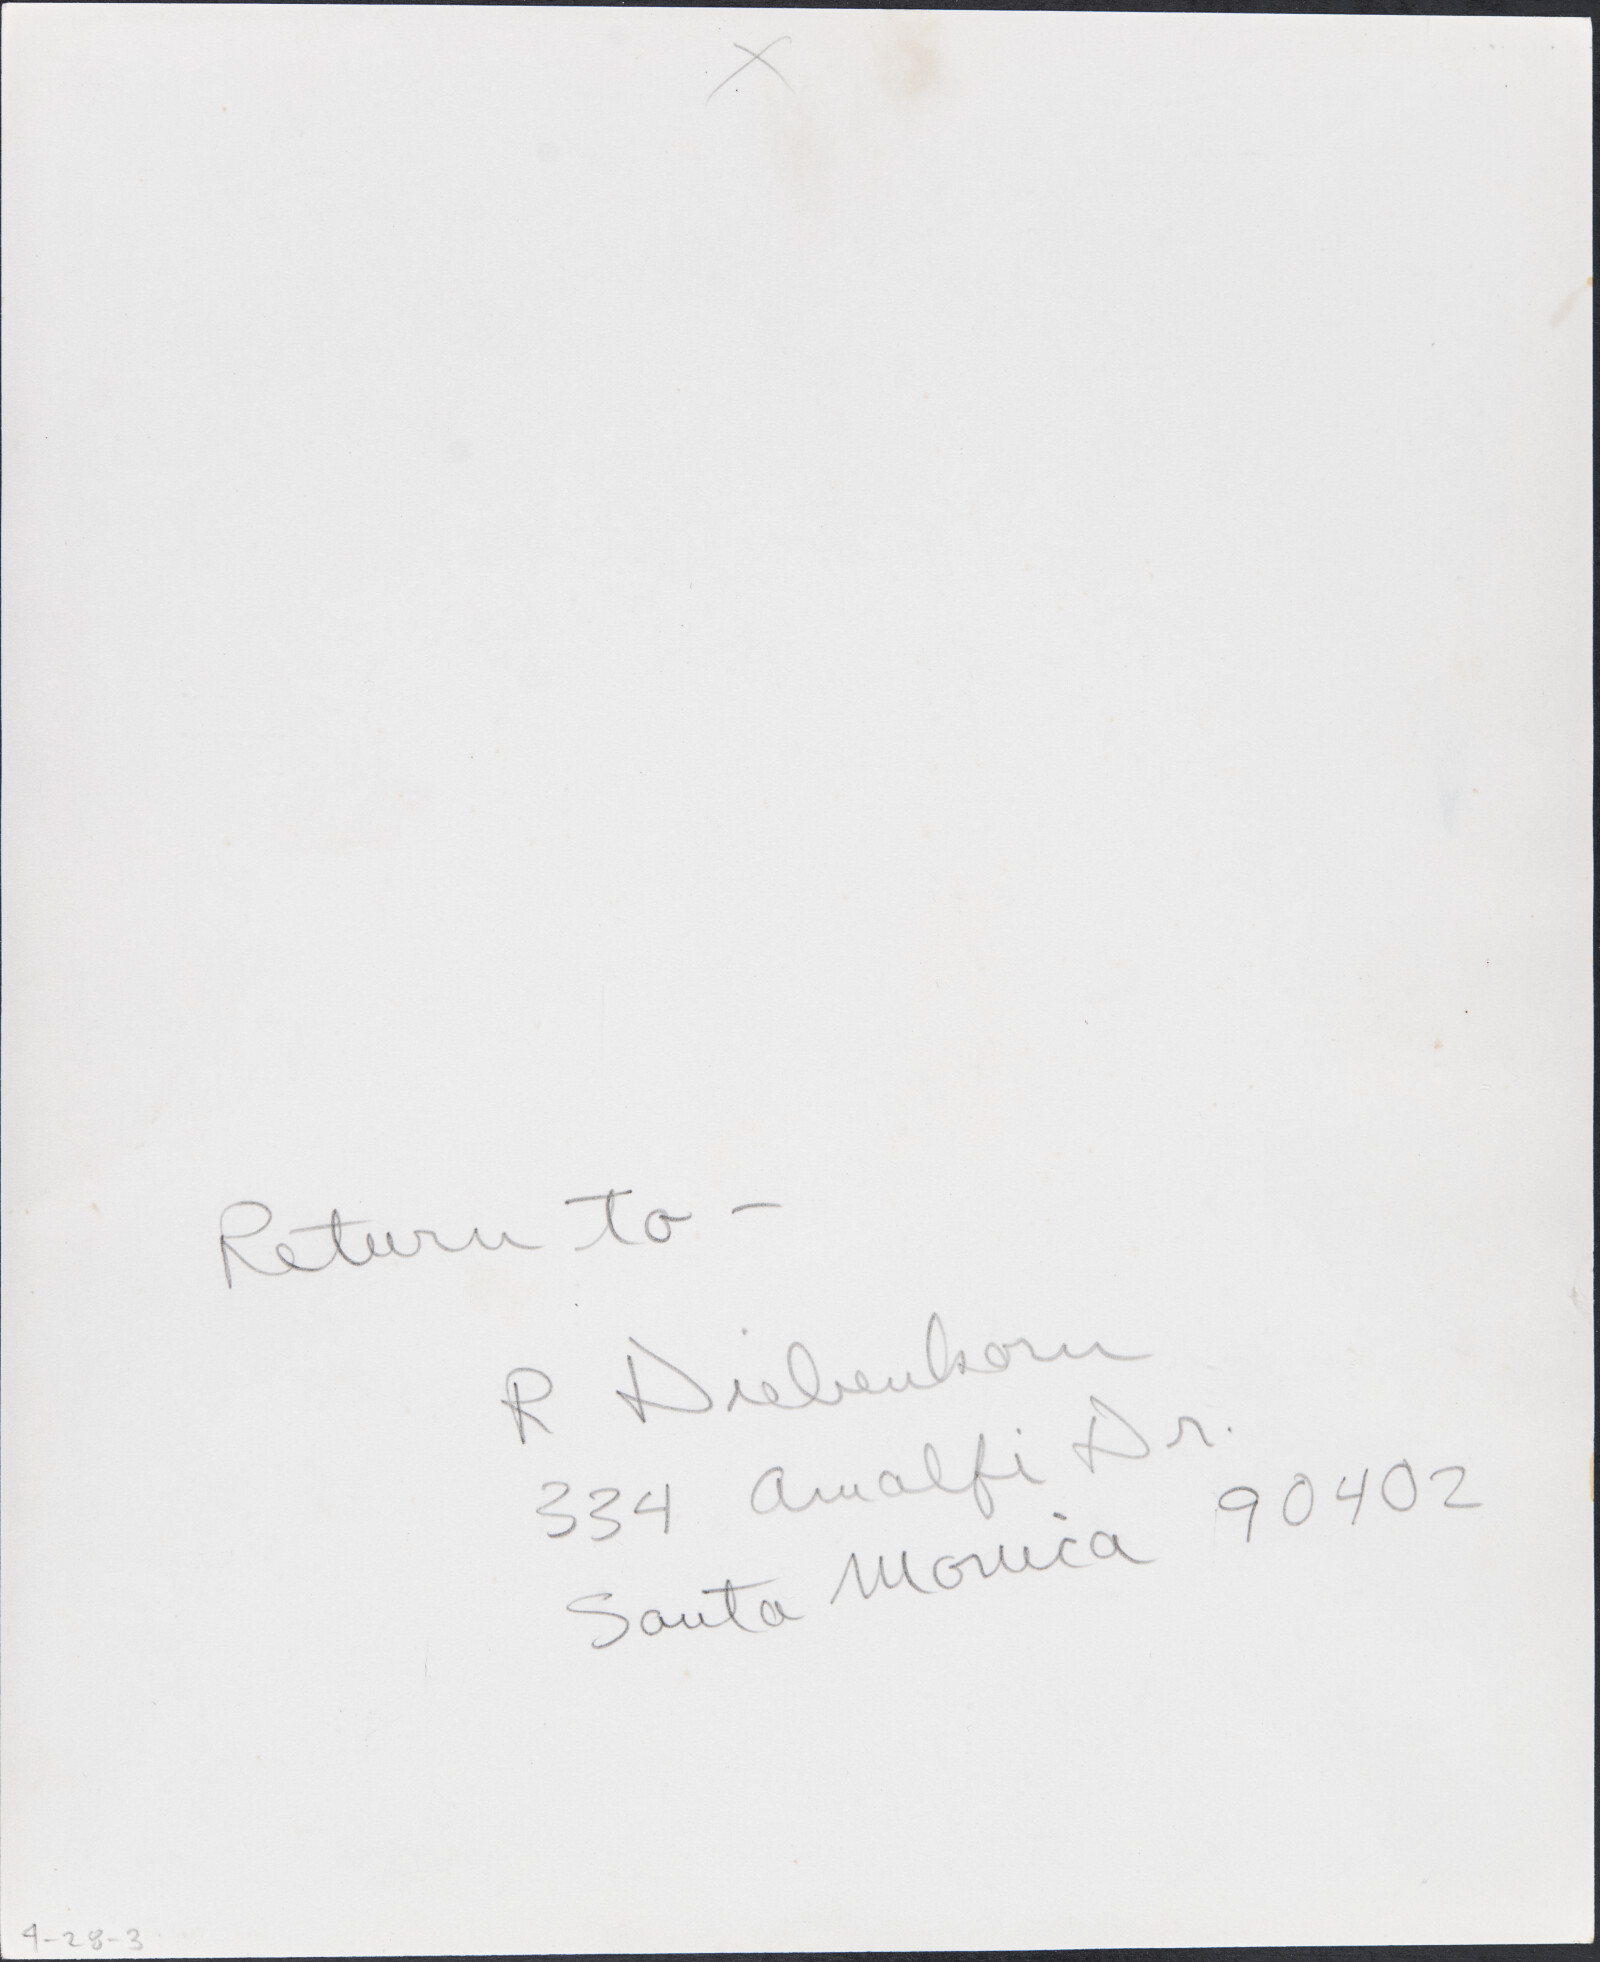 X
Return to -
R Diebenkorn
334 Amalfi Dr.
Santa Monica 90402
4-28-3